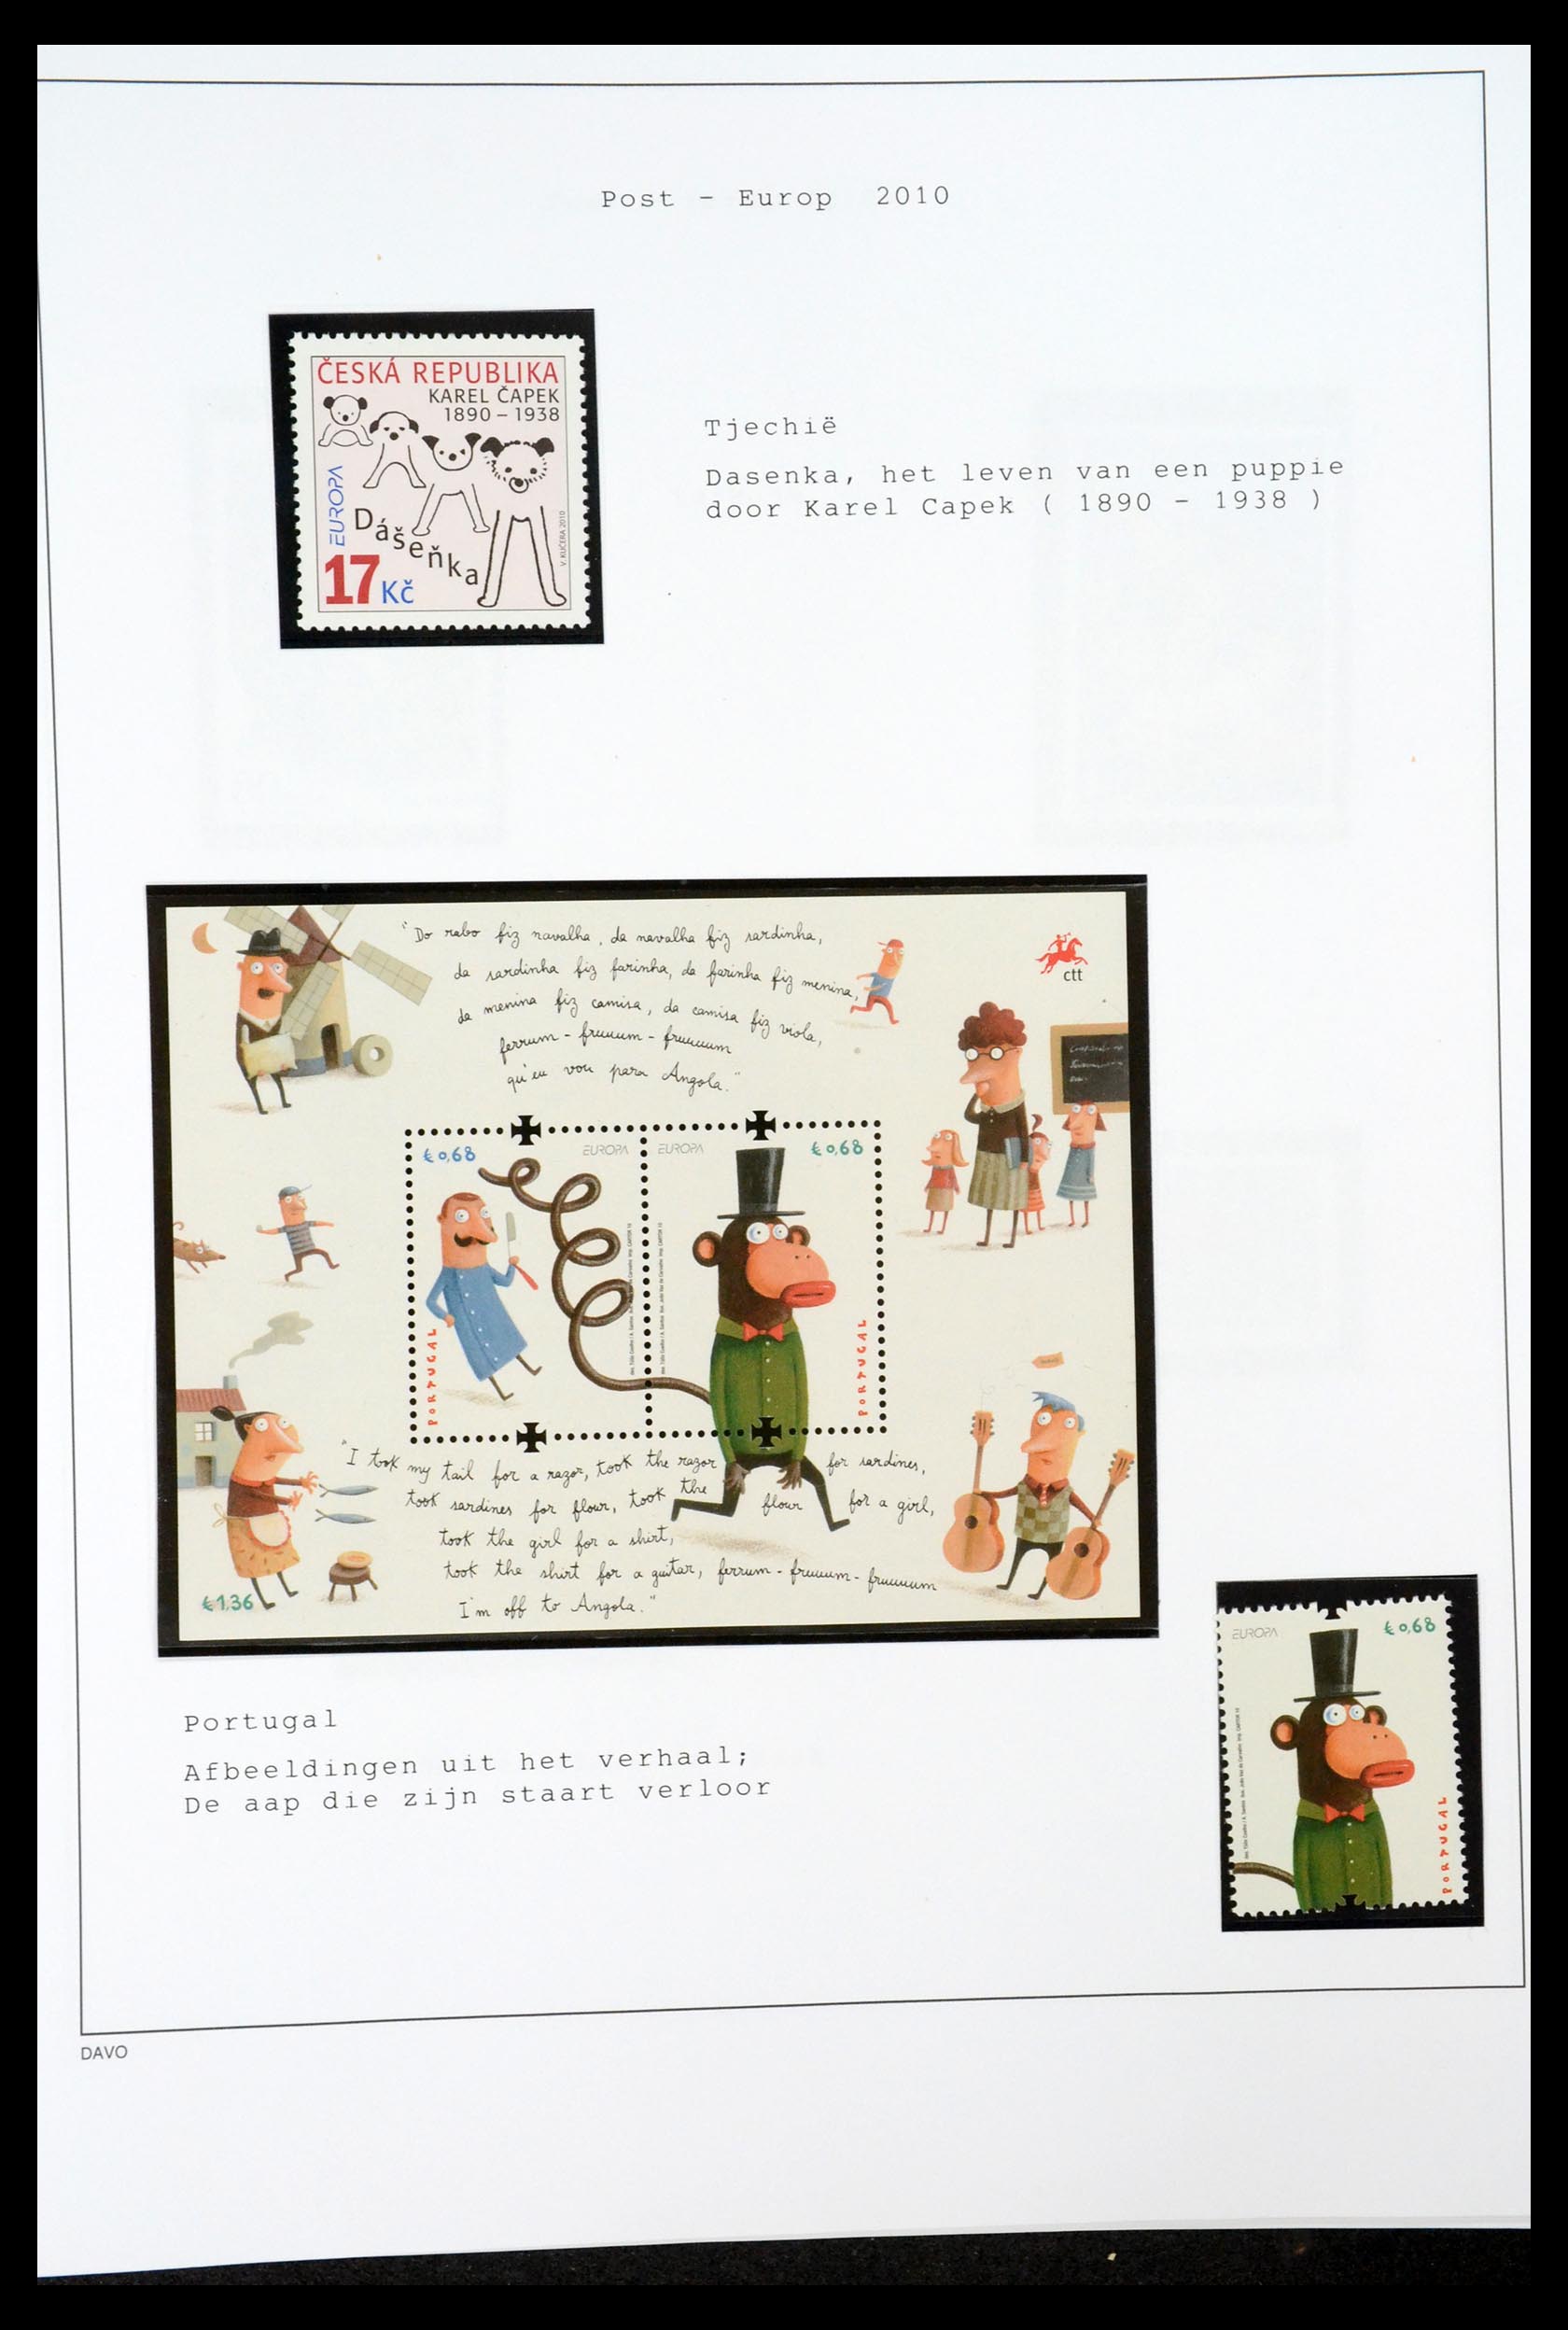 Post - Europ 2010
ČESKÁ REPUBLIKA
KAREL ČAPEK
1890 – 1938
EUROPA
Dášeňka
17 Kč
V. KUČERA 2010
Tjechië
Dasenka, het leven van een puppie
door Karel Capek ( 1890 - 1938 )
"Do rabo fiz navalha, da navalha fiz sardinha,
da sardinha fiz farinha, da farinha fiz menina,
da menina fiz camisa, da camisa fiz viola,
ferrum - fruuum - fruuuum
qu'eu vou para Angola."
ctt
€ 0,68
EUROPA
PORTUGAL
EUROPA
€ 0,68
PORTUGAL
"I took my tail for a razor, took the razor for sardines,
took sardines for flour, took the flour for a girl,
took the girl for a shirt,
took the shirt for a guitar, ferrum - fruuum - fruuuum
I'm off to Angola."
€ 1,36
EUROPA
€ 0,68
PORTUGAL
Portugal
Afbeeldingen uit het verhaal;
De aap die zijn staart verloor
DAVO